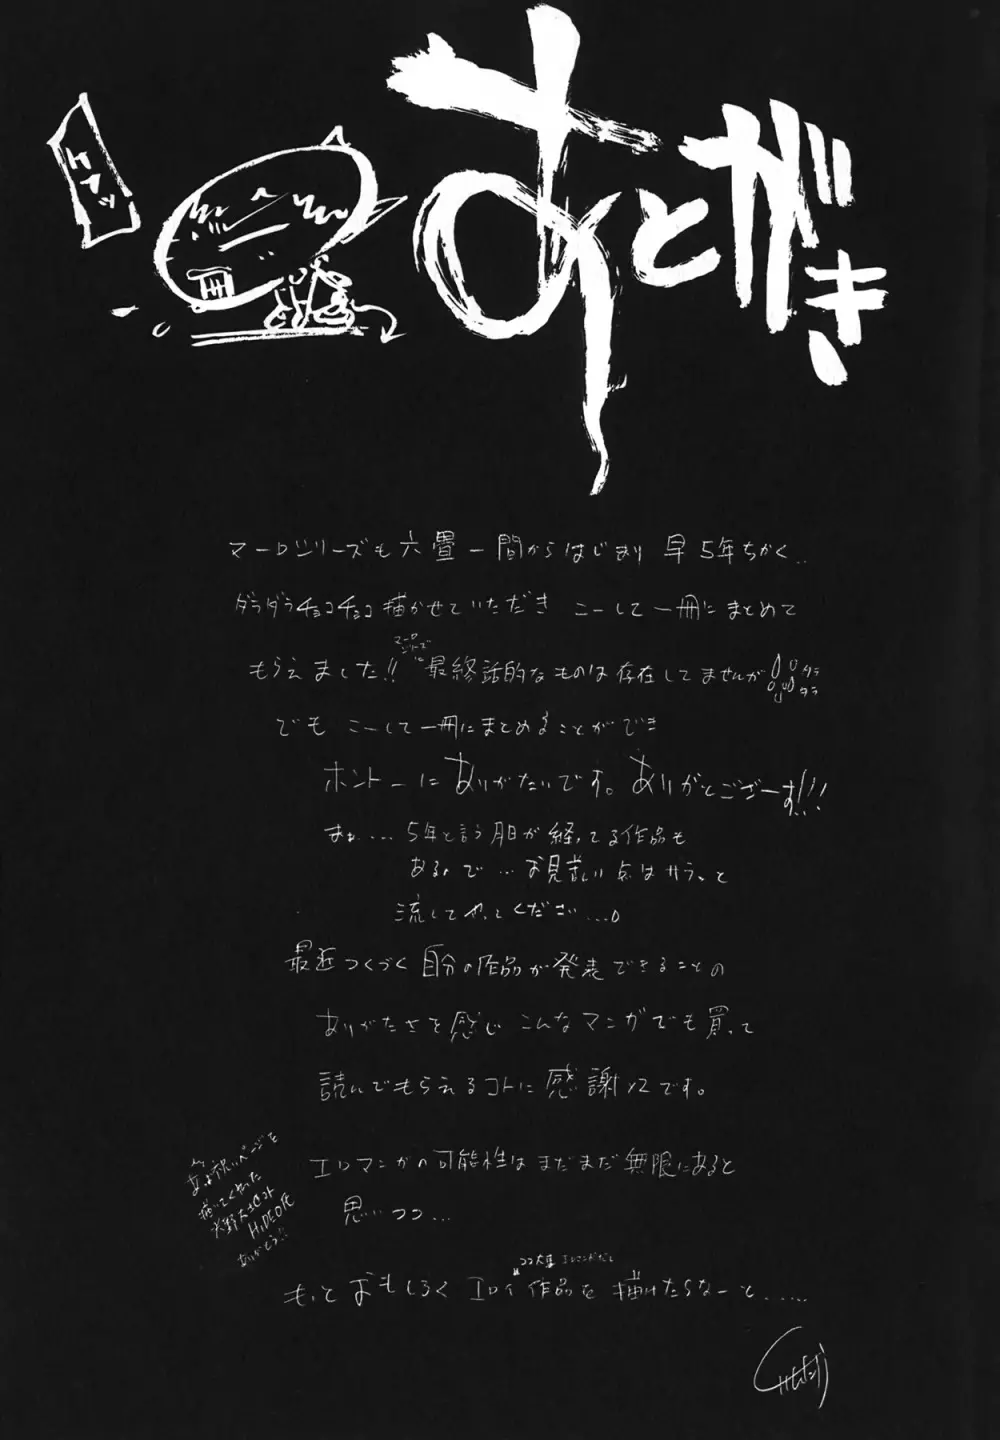 あとがき
マーロシリーズも六畳一間からはじまり 早5年ちかく..
ダラダラチョコチョコ描かせていただき こーして一冊にまとめて
もらえました!! 最終話的なものは存在してませんが
マーロシリーズ
ダラダラ
でも こーして一冊にまとめることができ
ホントーにありがたいです。ありがとござーす!!!
まぁ.... 5年と言う月日が経ってる作品も
あるので... お見苦しい点はサラっと
流してやってください...。
最近つくづく 自分の作品が発表できることの
ありがたさを感じ こんなマンガでも買って
読んでもらえるコトに 感謝×2です。
エロマンガの可能性は まだまだ無限にあると
思いつつ...
お祝いページを
描いてくれた
HIDEO氏
ありがとう!!
ココ大事 エロマンガだし
もっと おもしろく エロイ 作品を 描けたらなーと......